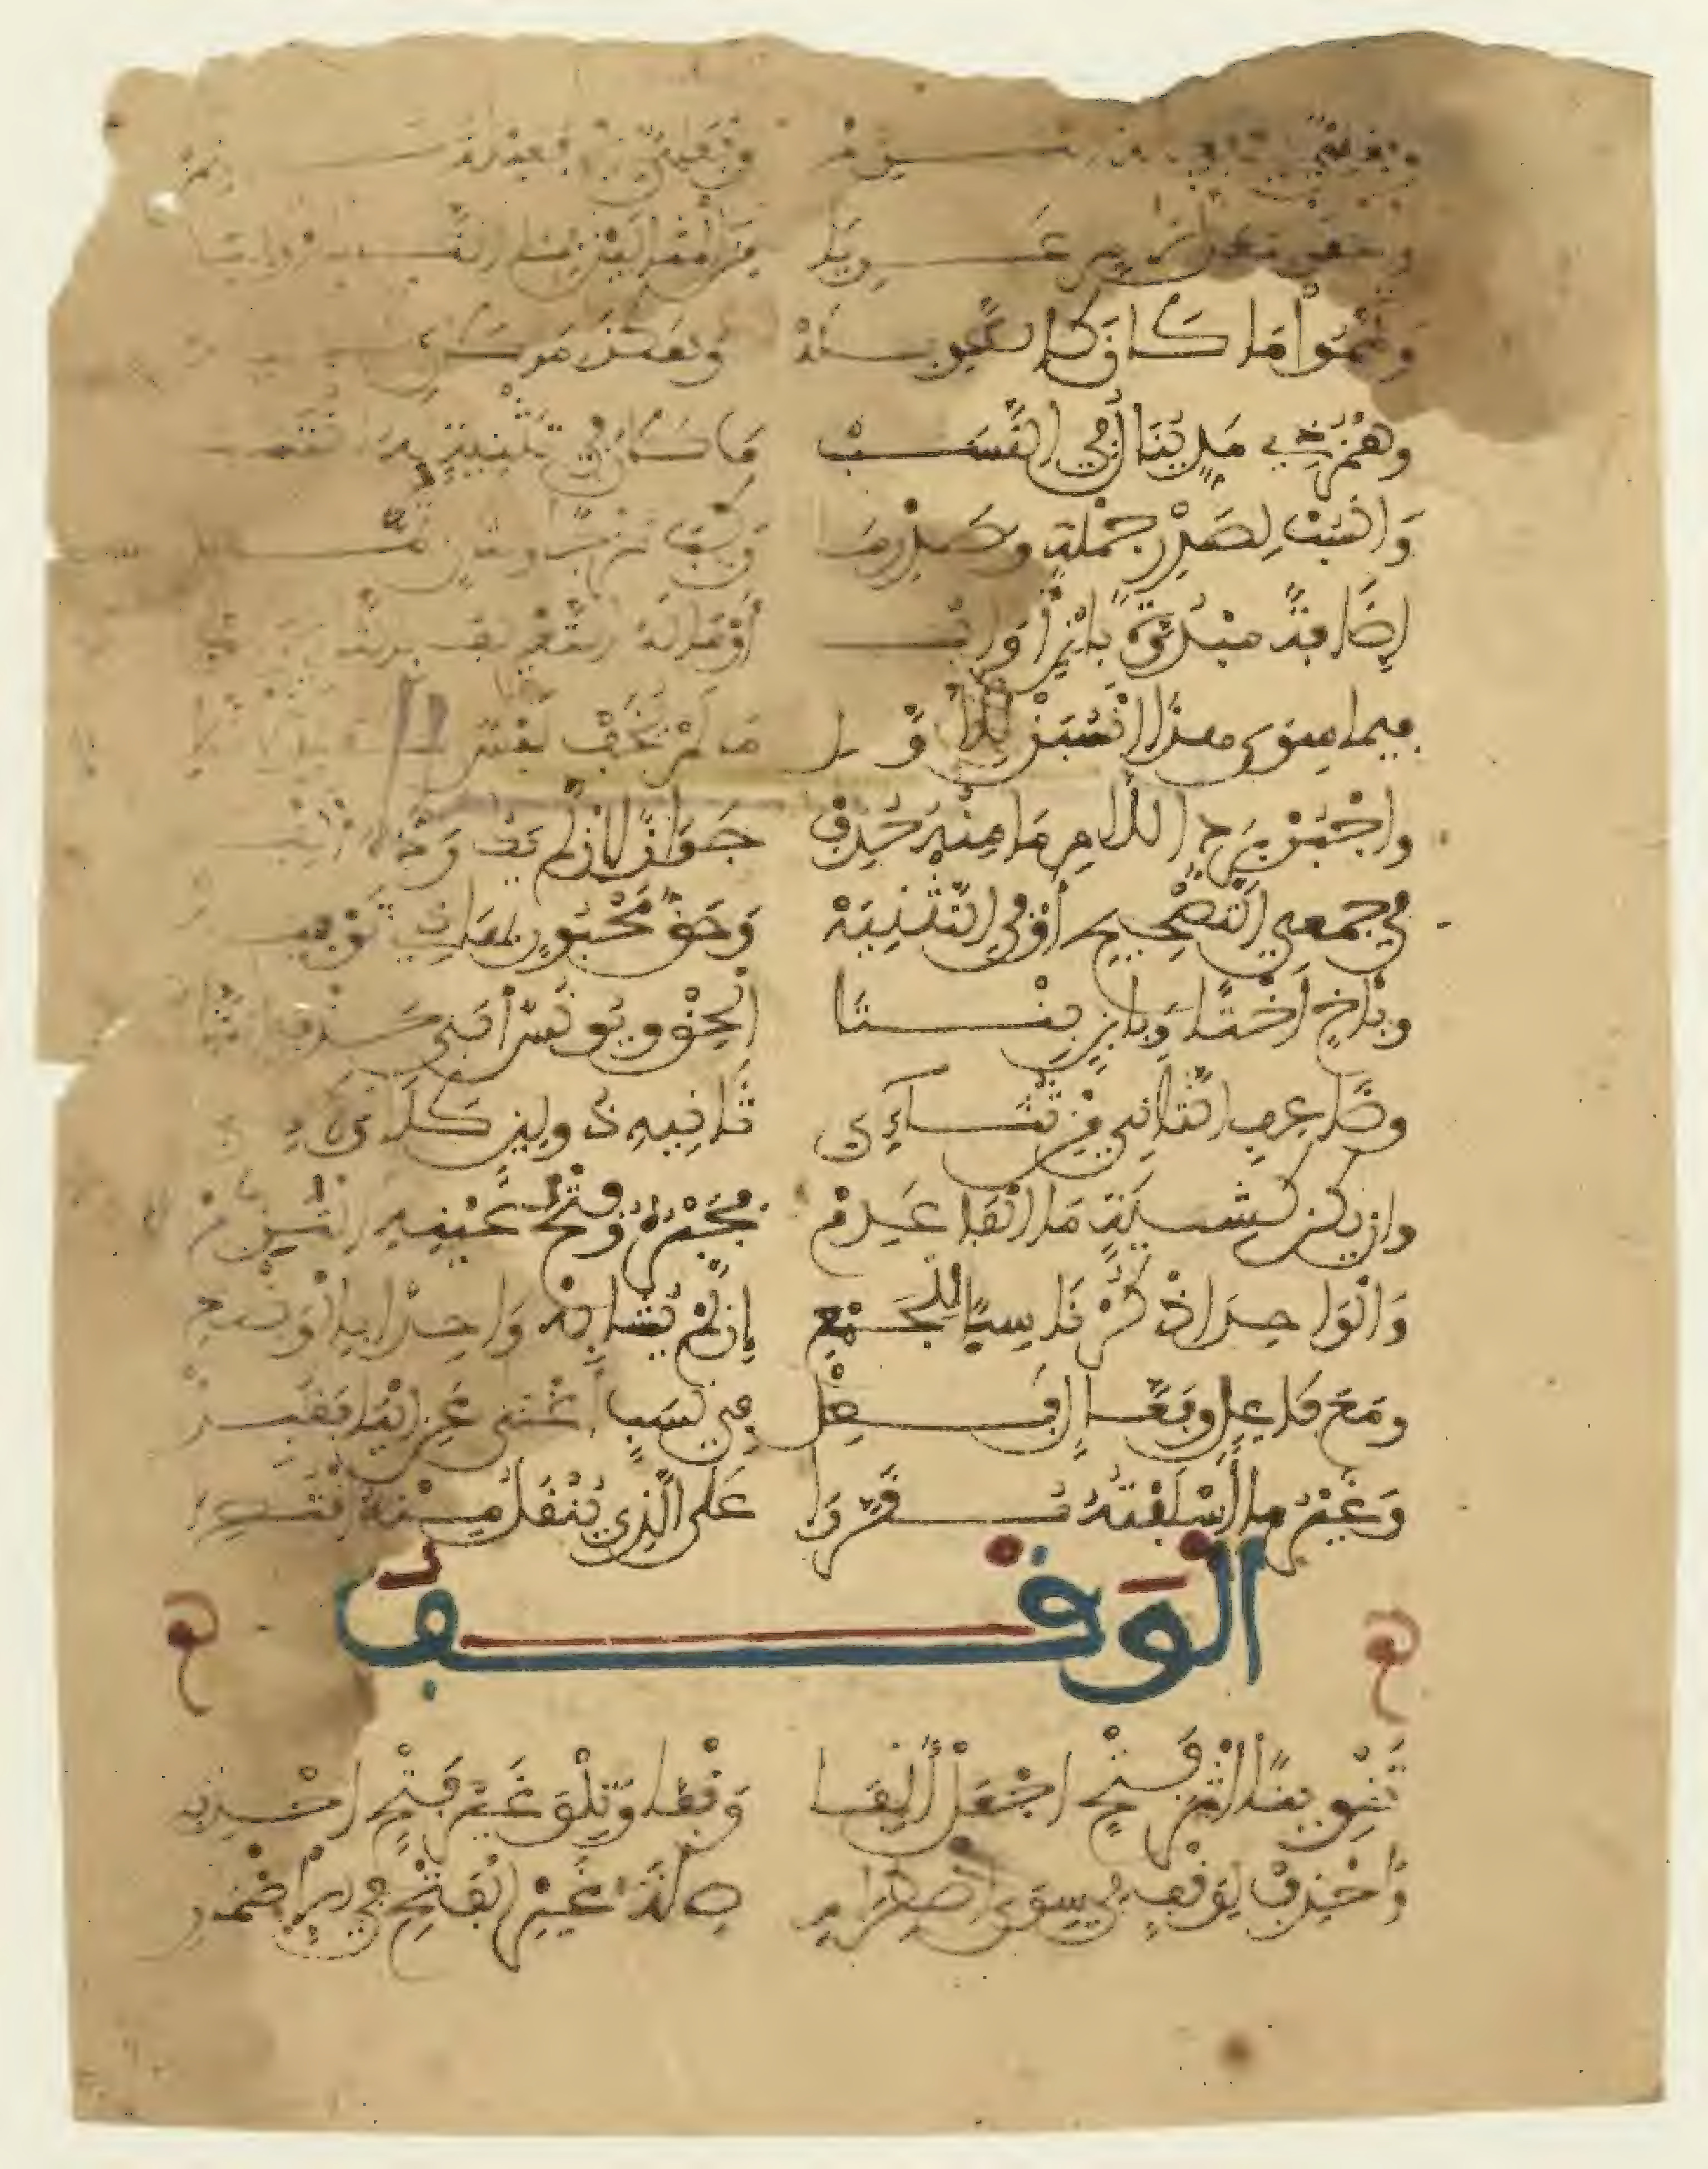 وفعلي في
من المثالين بما التا
وتمموا ما كان كالطويله وهكذا ما كان
وهمز ذي مد ينال في النسب ما كان في تثنية له انتسب
وانسب لصدر جملة وصدر ما ركب مزجا ولثان تمما
إضافة مبدوءة بابن أو اب أو ما له التعريف
فيما سوى هذا انسبن للأول ما لم يخف لبس
واجبر برد اللام ما منه حذف جوازا ان لم يك رده ألف
في جمعي التصحيح أو في التثنيه وحق مجبور بهذي توفيه
وبأخ أختا وبابن بنتا ألحق ويونس أبى حذف التا
وضاعف الثاني من ثنائي ثانيه ذو لين كلا
وان يكن كشية ما الفا عدم فجبره وفتح عينه التزم
والواحد اذكر ناسبا للجمع إن لم يشابه واحدا بالوضع
ومع فاعل وفعال فعل في نسب أغنى عن اليا فقبل
وغير ما أسلفته مقررا على الذي ينقل منه اقتصرا
الوقف
تنوينا اثر فتح اجعل ألفا وقفا وتلو غير فتح احذفا
واحذف لوقف في سوى اضطرار صلة غير الفتح في الاضمار